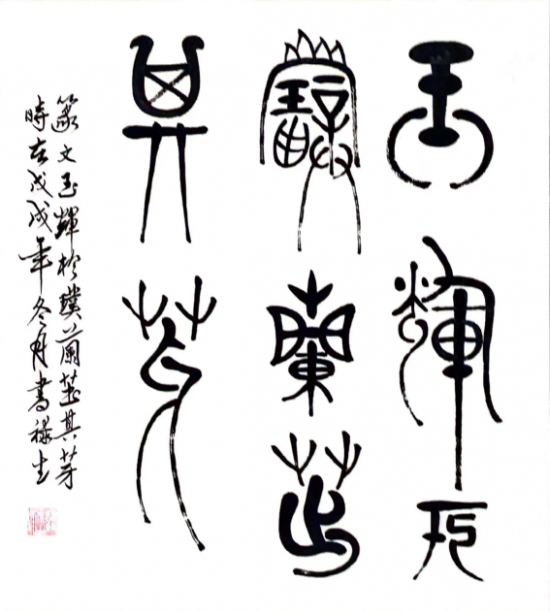 玉輝於
璞蘭茁
其芽
篆文玉輝於璞蘭茁其芽
時在戊戌年冬月書禄生